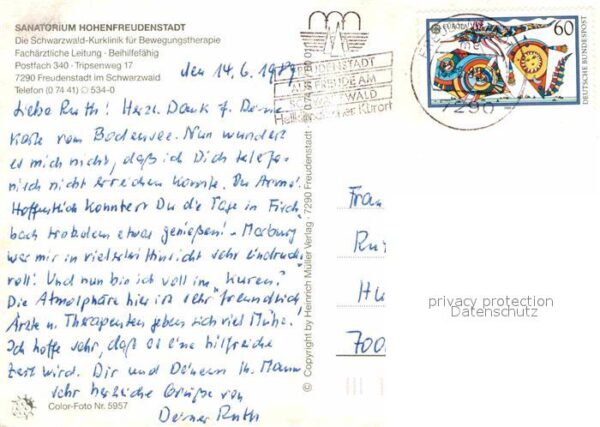 SANATORIUM HOHENFREUDENSTADT
Die Schwarzwald-Kurklinik für Bewegungstherapie
Fachärztliche Leitung - Beihilfefähig
Postfach 340 · Tripsenweg 17
7290 Freudenstadt im Schwarzwald
Telefon (0 74 41) 534-0
den 14.6.1989
Liebe Ruth! Herzl. Dank f. Deine
Karte vom Bodensee. Nun wundert
es mich nicht, daß ich Dich telefo-
nisch nicht erreichen konnte. Du Arme!
Hoffentlich konntest Du die Tage in Fisch-
bach trotzdem etwas genießen! - Marburg
war mir in vielerlei Hinsicht sehr eindruck
voll! Und nun bin ich voll im "Kuren".
Die Atmosphäre hier ist sehr freundlich,
Ärzte u. Therapeuten geben sich viel Mühe.
Ich hoffe sehr, daß es eine hilfreiche
Zeit wird. Dir und Deinem lb. Mann
sehr herzliche Grüße von
Deiner Ruth
Color-Foto Nr. 5957
© Copyright by Heinrich Müller Verlag - 7290 Freudenstadt
FREUDENSTADT
AUS FREUDE AM
SCHWARZWALD
Heilklimatischer Kurort
7290
EUROPA
60
DEUTSCHE BUNDESPOST
Frau
Ru
Hu
700
privacy protection
Datenschutz